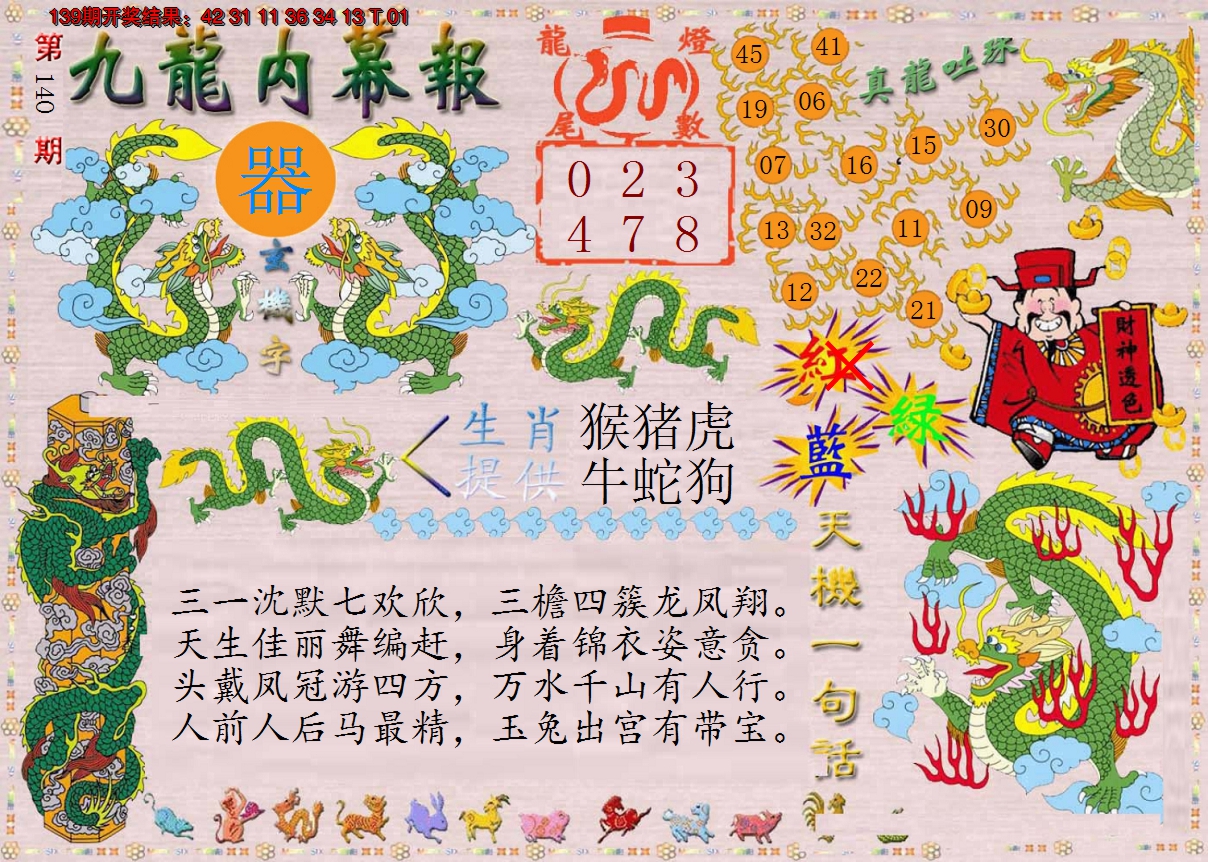 139期开奖结果：42 31 11 36 34 13 T 01
第140期
九龍内幕報
器
玄機字
龍燈
尾數
0 2 3
4 7 8
真龍吐珠
45 41
19 06
30
15
07 16
09
13 32 11
22
12
21
財神透色
紅
綠
藍
生肖 猴猪虎
提供 牛蛇狗
三一沈默七欢欣，三檐四簇龙凤翔。
天生佳丽舞编赶，身着锦衣姿意贪。
头戴凤冠游四方，万水千山有人行。
人前人后马最精，玉兔出宫有带宝。
天機一句话